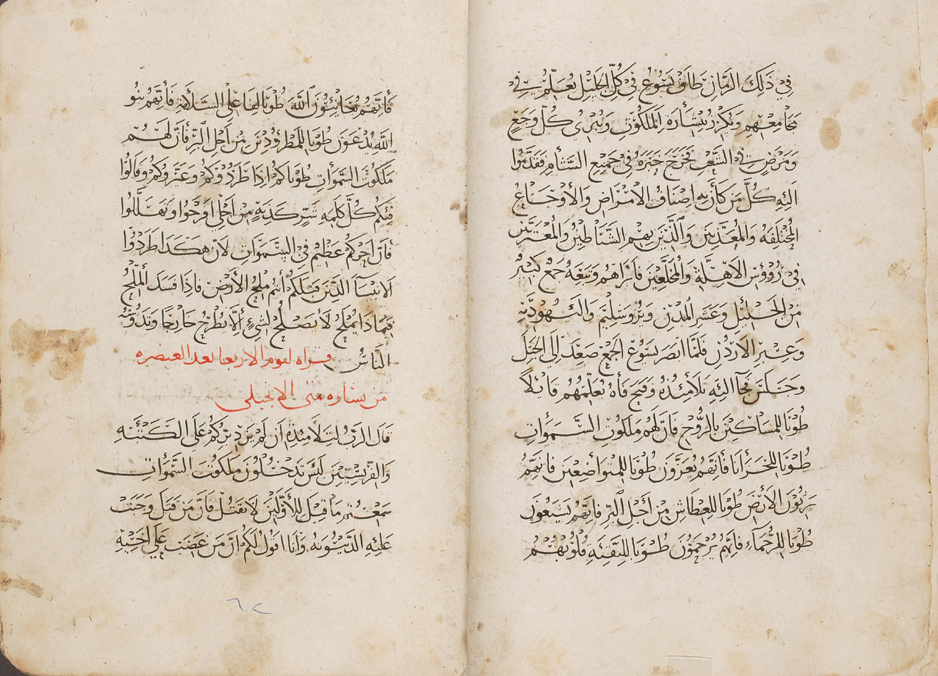 في ذلك الزمان طاف يسوع في كل الجليل يعلم في
مجامعهم ويكرز ببشارة الملكوت ويبرى كل وجع
ومرض في الشعب فخرج خبره في جميع الشام فقدموا
اليه كل من كان به اصناف الامراض والاوجاع
المختلفه والمعذبين والذين بهم الشياطين والمعترين
في رؤوس الاهلة والمخلعين فابراهم وتبعه جمع كثير
من الجليل وعشر المدن ويروسليم واليهودية
وعبر الاردن فلما ابصر يسوع الجمع صعد الى الجبل
وجلس فجآ اليه تلاميذه وفتح فاه يعلمهم قائلاً
طوبا للمساكين بالروح فان لهم ملكوت السموات
طوبا للحزانا فانهم يعزون طوبا للمتواضعين فانهم
يرثون الأرض طوبا للعطاش من أجل البر فانهم يشبعون
طوبا للرحماء فانهم يرحمون طوبا للنقيه قلوبهم
فانهم يعاينون الله طوبا لفاعلي السلامة فانهم بنو
الله يدعون طوبا للمطرودين من اجل البر فان لهم
ملكوت السموات طوباكم اذا طردوكم وعيروكم وقالوا
فيكم كل كلمه شر كذبه من اجلي افرحوا وتهللوا
فان اجركم عظيم في السموات لان هكذا طردوا
الانبيا الذين قبلكم أنتم ملح الأرض فاذا فسد الملح
فبماذا يملح لا يصلح لشيء إلا يطرح خارجا وتدوسه
الناس قراه ليوم الاربعا بعد العنصره
من بشاره متى الانجيلى
قال الرب لتلاميذه ان لم يزد بركم على الكتبه
والفريسيين لستم تدخلون ملكوت السموات
سمعتم ما قيل للأولين لا تقتل فان من قتل وجبت
عليه الدينونه وانا اقول لكم ان من غضب على اخيه